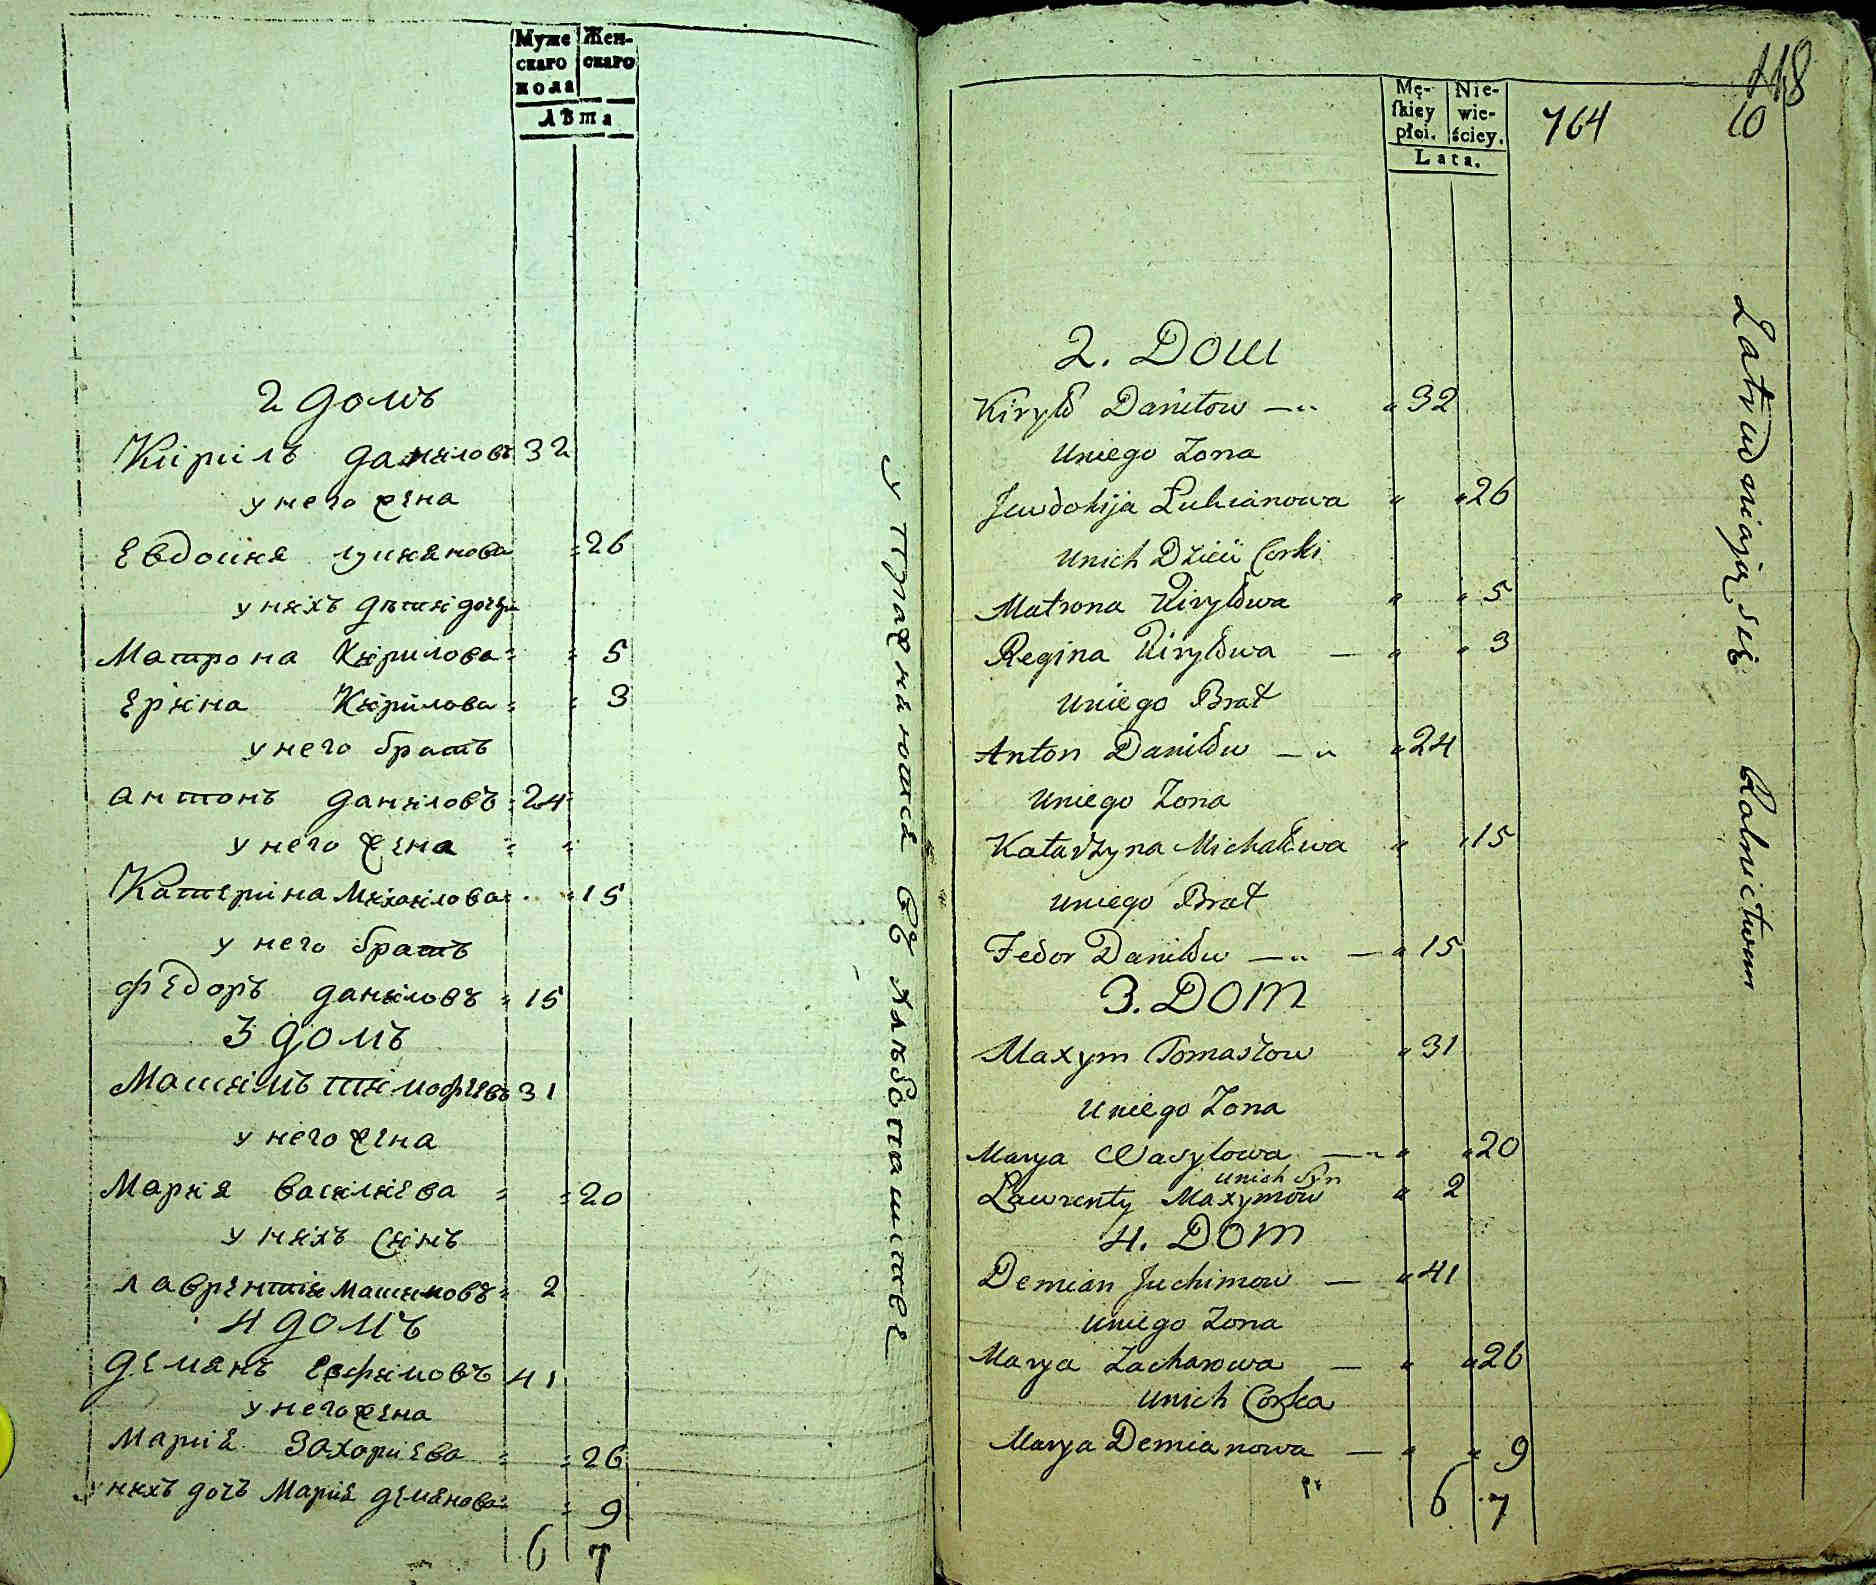 Муже
скаго
пола
Жен-
скаго
Лѣта
2 домъ
Кирилъ даниловъ 32
у него жена
Евдокия лукянова 26
у нихъ дети дочери
Матрона Кирилова 5
Ерина Кирилова 3
у него братъ
антонъ даниловъ 24
у него жена
Катерина Михаилова 15
у него братъ
Федоръ даниловъ 15
3 домъ
Машимъ тимофеевъ 31
у него жена
Мария василиева 20
у нихъ синъ
лаврентии Машимовъ 2
4 домъ
демянъ Евфимовъ 41
у него жена
Мария Захариева 26
у нихъ дочъ Мария демянова 9
6 7
упражняются въ хлѣбопашстве
Mę-
skiey
płci.
Nie-
wie-
ściey.
Lata.
764
118
10
2. Dom
Kiryło Daniłow 32
Uniego Zona
Jewdokija Łukianowa 26
Unich Dzieci Corki
Matrona Kiryłowa 5
Regina Kiryłowa 3
Uniego Brat
Anton Daniłow 24
Uniego Zona
Katarzyna Michałowa 15
Uniego Brat
Fedor Daniłow 15
3. Dom
Maxym Tomaszow 31
Uniego Zona
Marya Wasylowa 20
Unich Syn
Lawrenty Maxymow 2
4. Dom
Demian Juchimow 41
Uniego Zona
Marya Zacharowa 26
Unich Corka
Marya Demianowa 9
6 7
Zatrudniają się Rolnictwem